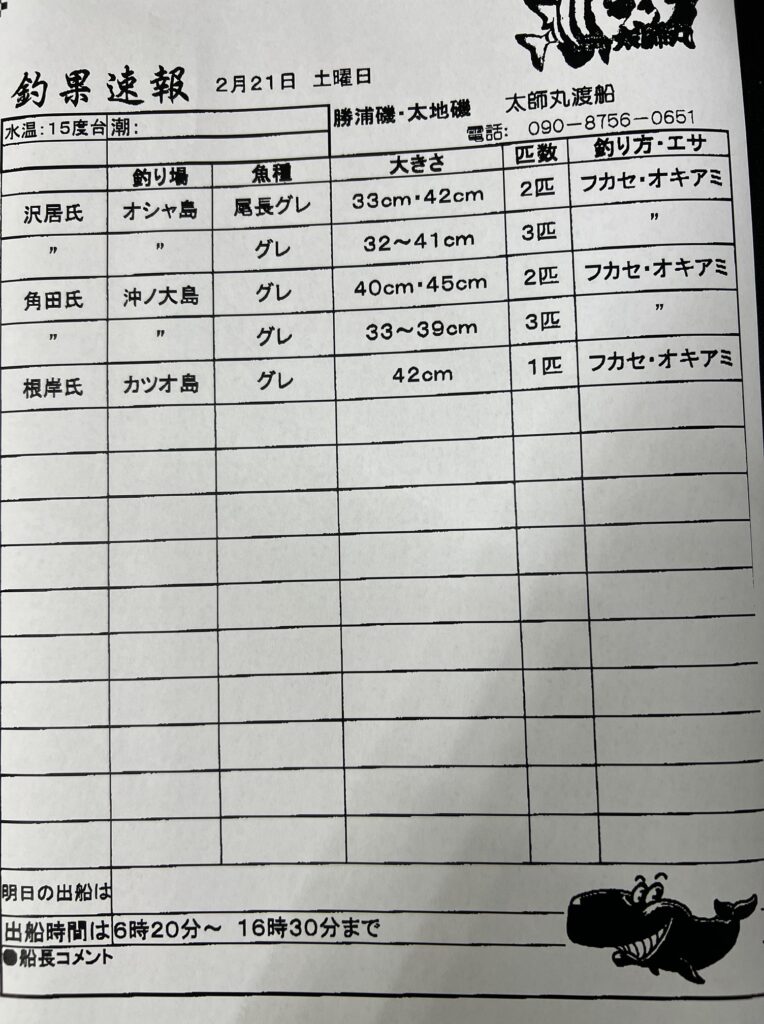 釣果速報 2月21日 土曜日
勝浦磯・太地磯 太師丸渡船
水温:15度台 潮:
電話: 090-8756-0651
釣り場 魚種 大きさ 匹数 釣り方・エサ
沢居氏 オシャ島 尾長グレ 33cm・42cm 2匹 フカセ・オキアミ
〃 〃 グレ 32~41cm 3匹 〃
角田氏 沖ノ大島 グレ 40cm・45cm 2匹 フカセ・オキアミ
〃 〃 グレ 33~39cm 3匹 〃
根岸氏 カツオ島 グレ 42cm 1匹 フカセ・オキアミ
明日の出船は
出船時間は 6時20分~ 16時30分まで
●船長コメント